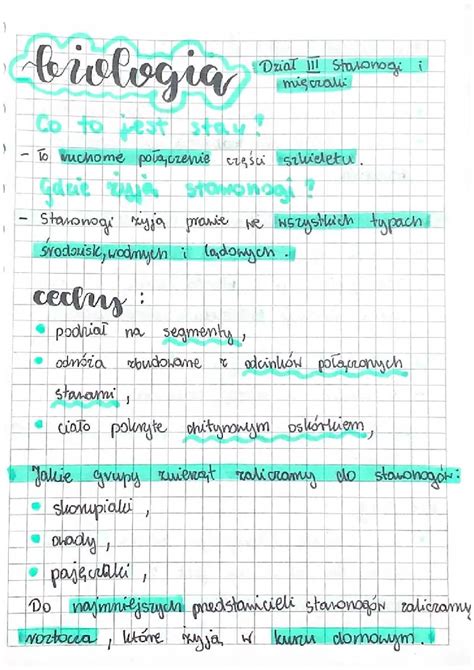 biologia
Dział III Stawonogi i
mięczaki
Co to jest staw?
- To ruchome połączenie części szkieletu.
Gdzie żyją stawonogi?
- Stawonogi żyją prawie we wszystkich typach
środowisk, wodnych i lądowych.
cechy:
• podział na segmenty,
• odnóża zbudowane z odcinków połączonych
stawami,
• ciało pokryte chitynowym oskórkiem,
Jakie grupy zwierząt zaliczamy do stawonogów:
• skorupiaki,
• owady,
• pajęczaki,
Do najmniejszych przedstawicieli stawonogów zaliczamy
roztocza, które żyją w kurzu domowym.